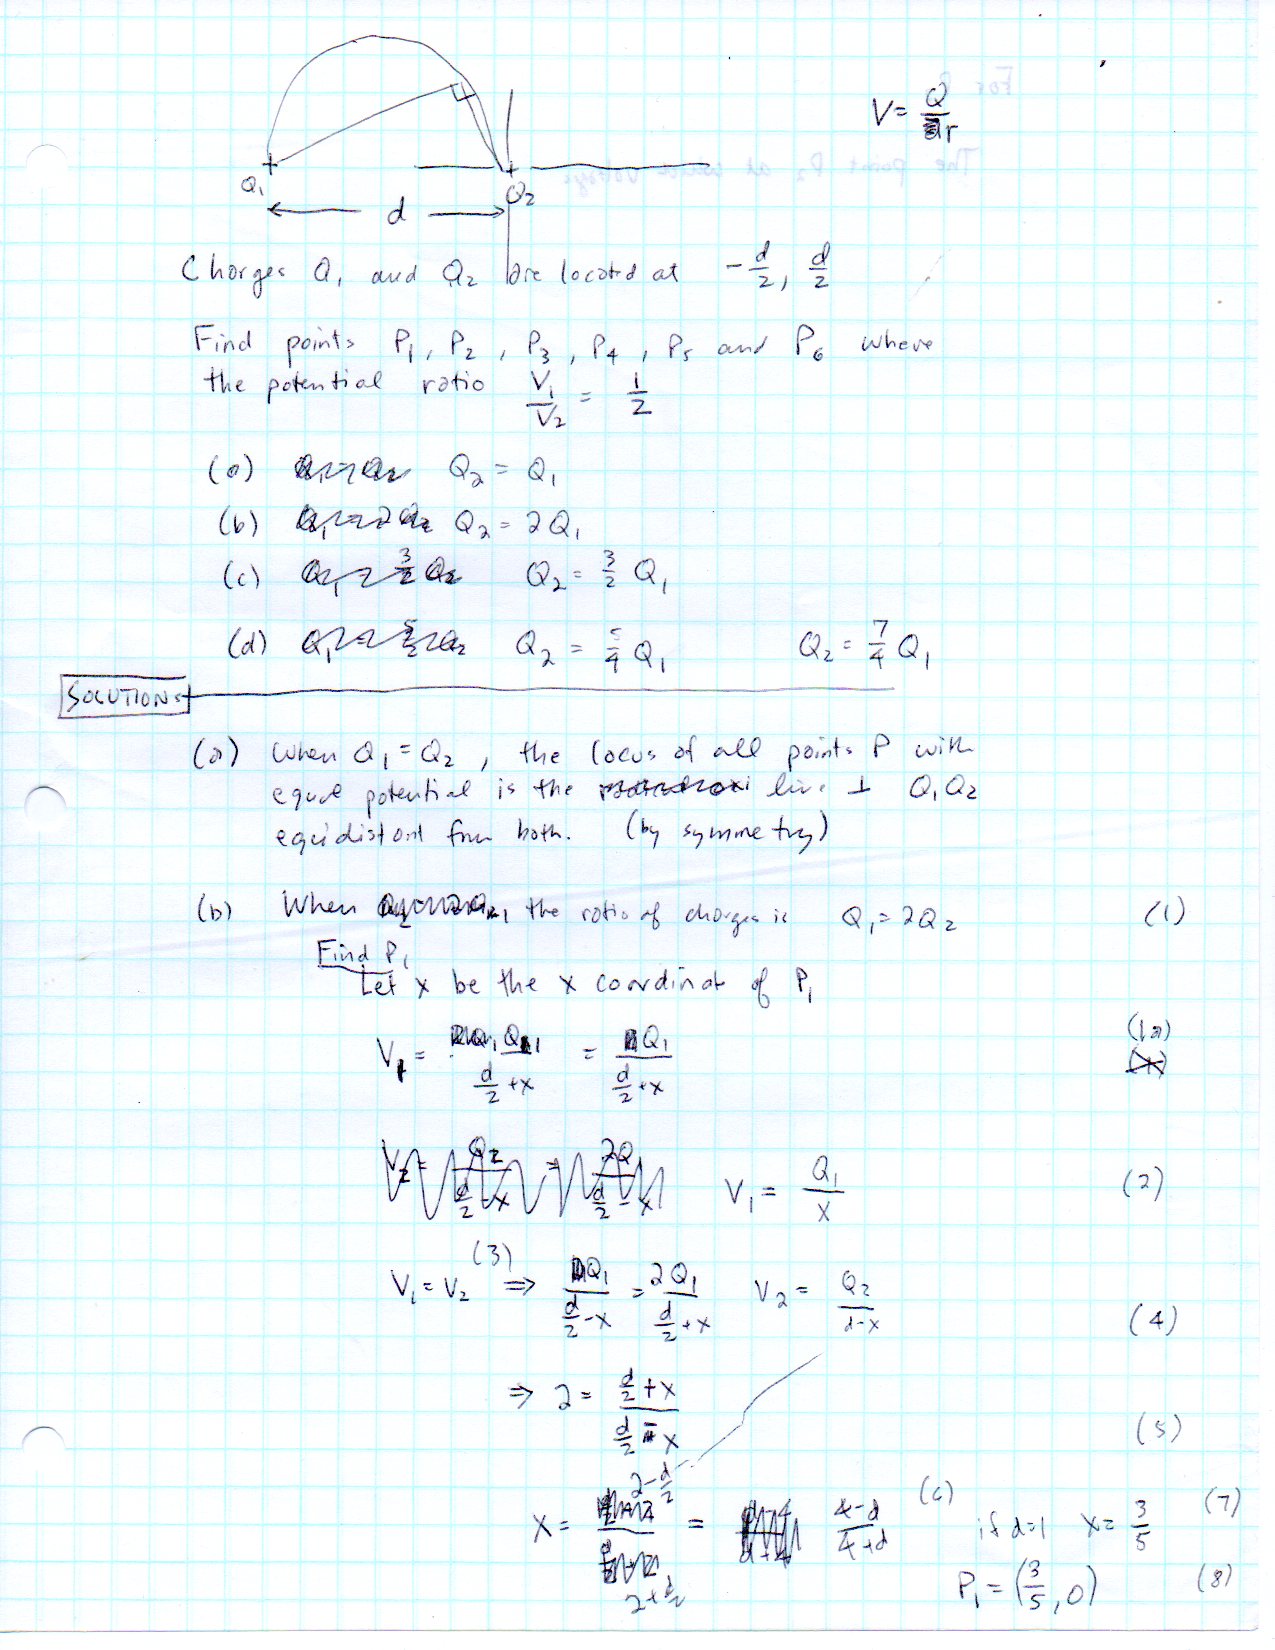 V = Q / r
Q1
Q2
d
Charges Q1 and Q2 are located at -d/2, d/2
Find points P1, P2, P3, P4, P5 and P6 where
the potential ratio V1/V2 = 1/2
(a) Q2 = Q1
(b) Q2 = 2Q1
(c) Q2 = 3/2 Q1
(d) Q2 = 5/4 Q1 Q2 = 7/4 Q1
SOLUTIONS
(a) When Q1 = Q2, the locus of all points P with
equal potential is the line ⊥ Q1Q2
equidistant from both. (by symmetry)
(b) When the ratio of charges is Q1 = 2Q2 (1)
Find P1
Let x be the x coordinat of P1
V1 = Q1 / (d/2 + x) = Q1 / (d/2 + x) (1a)
V1 = Q1 / x (2)
V1 = V2 (3) ⇒ Q1 / (d/2 - x) = 2Q1 / (d/2 + x) V2 = Q2 / (d-x) (4)
⇒ 2 = (d/2 + x) / (d/2 - x) (5)
x = (2 - d/2) / (2 + d/2) = (4-d) / (4+d) (6) if d=1 x = 3/5 (7)
P1 = (3/5, 0) (8)